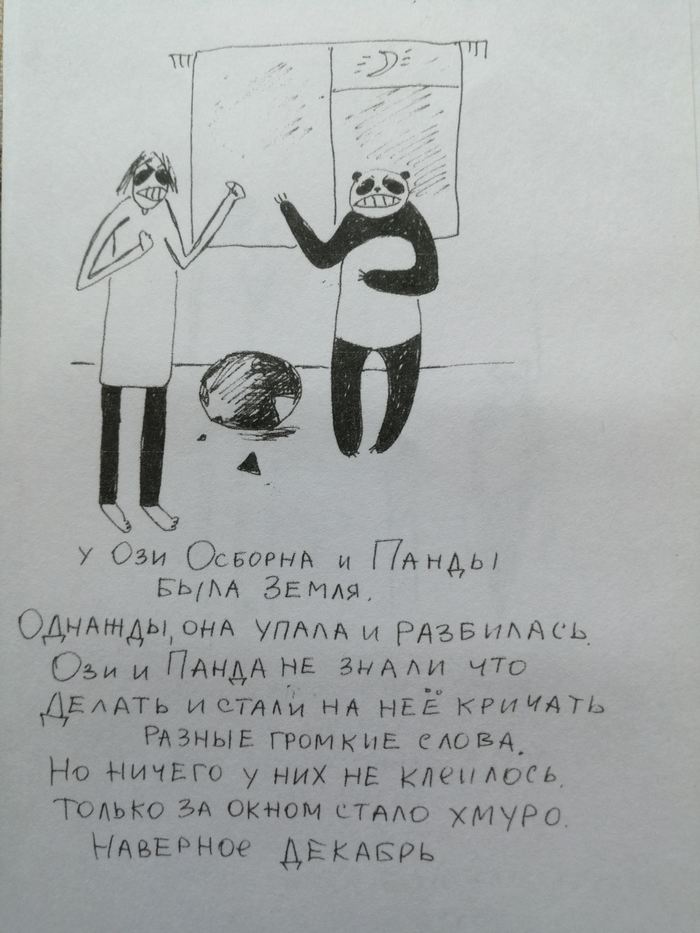 У Ози Осборна и Панды
была Земля.
Однажды, она упала и разбилась.
Ози и Панда не знали что
делать и стали на неё кричать
разные громкие слова.
Но ничего у них не клеилось.
только за окном стало хмуро.
Наверное декабрь